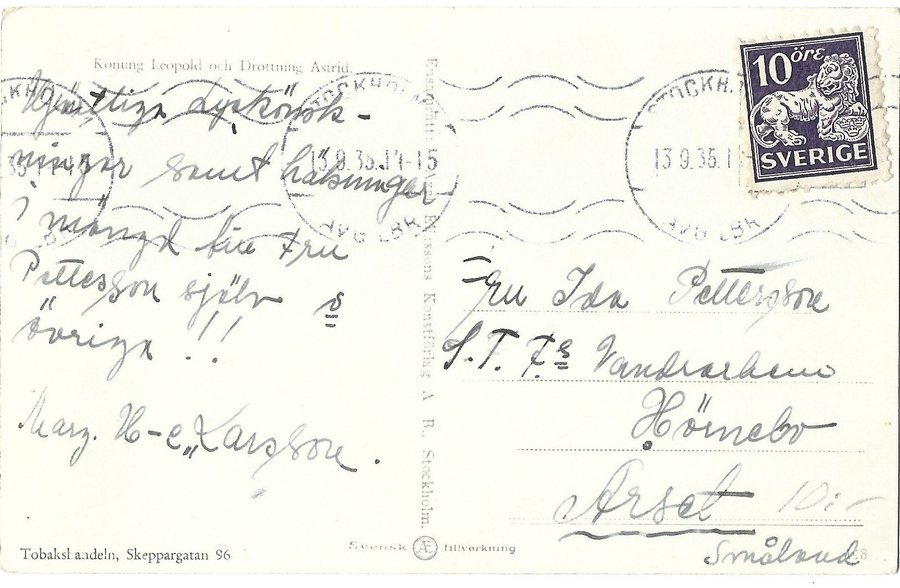 Konung Leopold och Drottning Astrid.
Hjärtliga lyckönsk-
ningar samt hälsningar
i mängd till Fru
Pettersson själv o
övriga !!
Marg. H-e Larsson.
Tobakshandeln, Skeppargatan 96
Ensamrätt: Axel Eliassons Konstförlag A. B., Stockholm.
Svensk Æ tillverkning
STOCKHOLM
13.9.35.14-15
AVG LBR
STOCKH
13.9.35.1
AVG LBR
10 ÖRE
SVERIGE
Fru Ida Pettersson
S.T.F:s Vandrarhem
Hörnebo
Arset
10:-
Småland